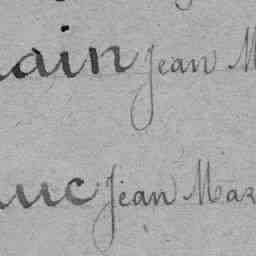 ain Jean M
uc Jean Mar